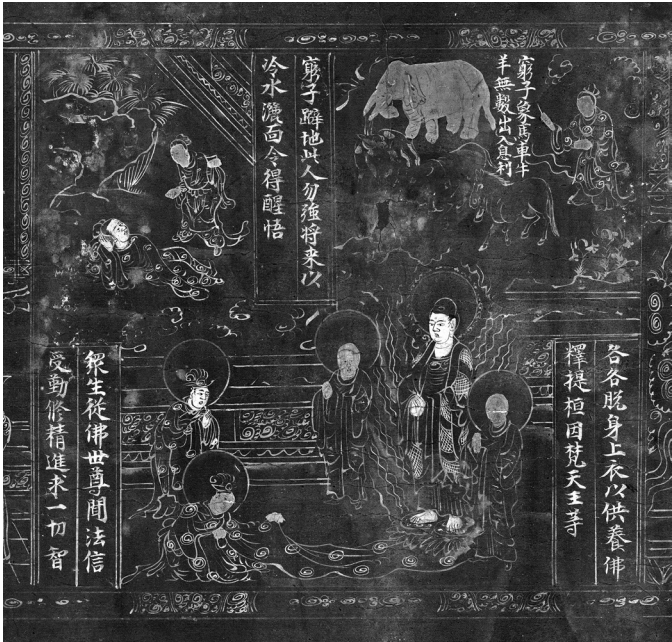 窮子象馬車牛
羊無數出入息利
窮子躃地此人勿強將来以
冷水灑面令得醒悟
各各脫身上衣以供養佛
釋提桓因梵天王等
衆生從佛世尊聞法信
受勤修精進求一切智